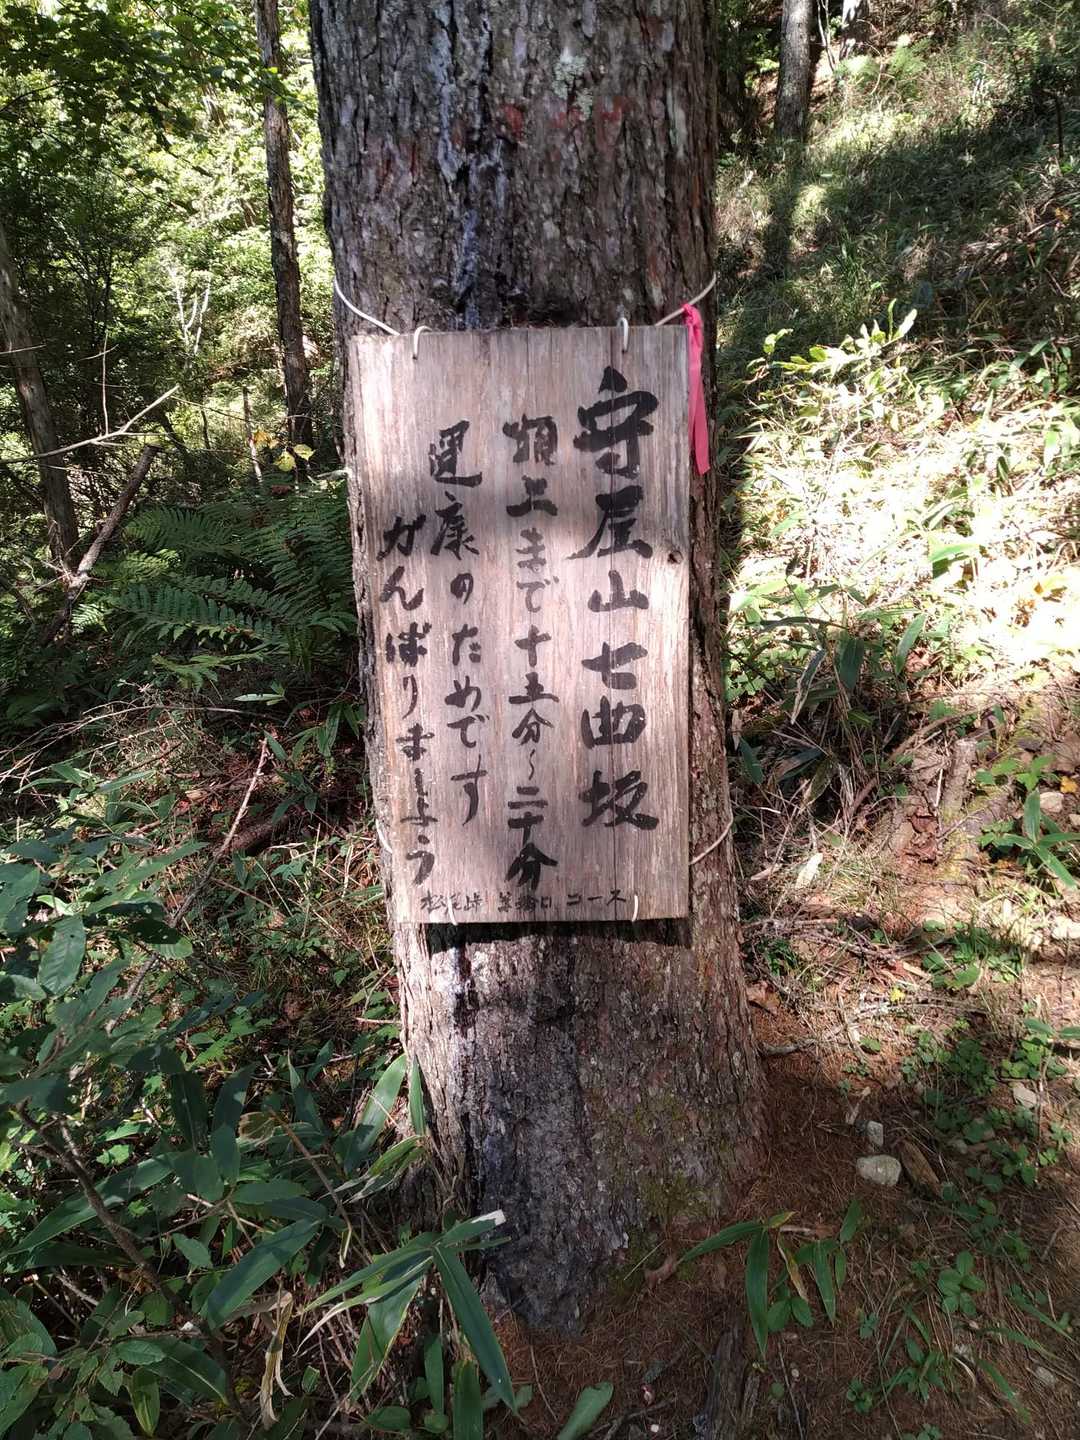 守屋山七曲坂
頂上まで十五分～二十分
健康のためです
がんばりましょう
松尾峠 コース